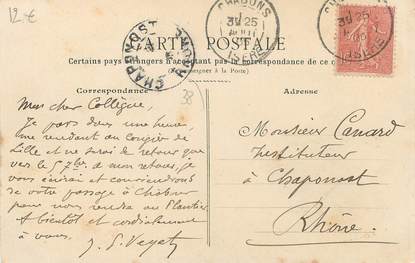 12 €
CHABONS
3E 25
AOUT
ISERE
CARTE POSTALE
Certains pays étrangers n'acceptant pas la correspondance de ce
(se renseigner à la Poste)
CHAPONOST
RHONE
Correspondance
Adresse
38
Mon cher Collègue,
Je pars dans une heure,
me rendant au congrès de
Lille et ne serai de retour que
vers le 5 7bre. à mon retour, je
vous écrirai et conviendrons
de votre passage à Chabons
pour nous rendre au
A bientôt et cordialement
à vous.
Monsieur Canard
Instituteur
à Chaponost
Rhône.